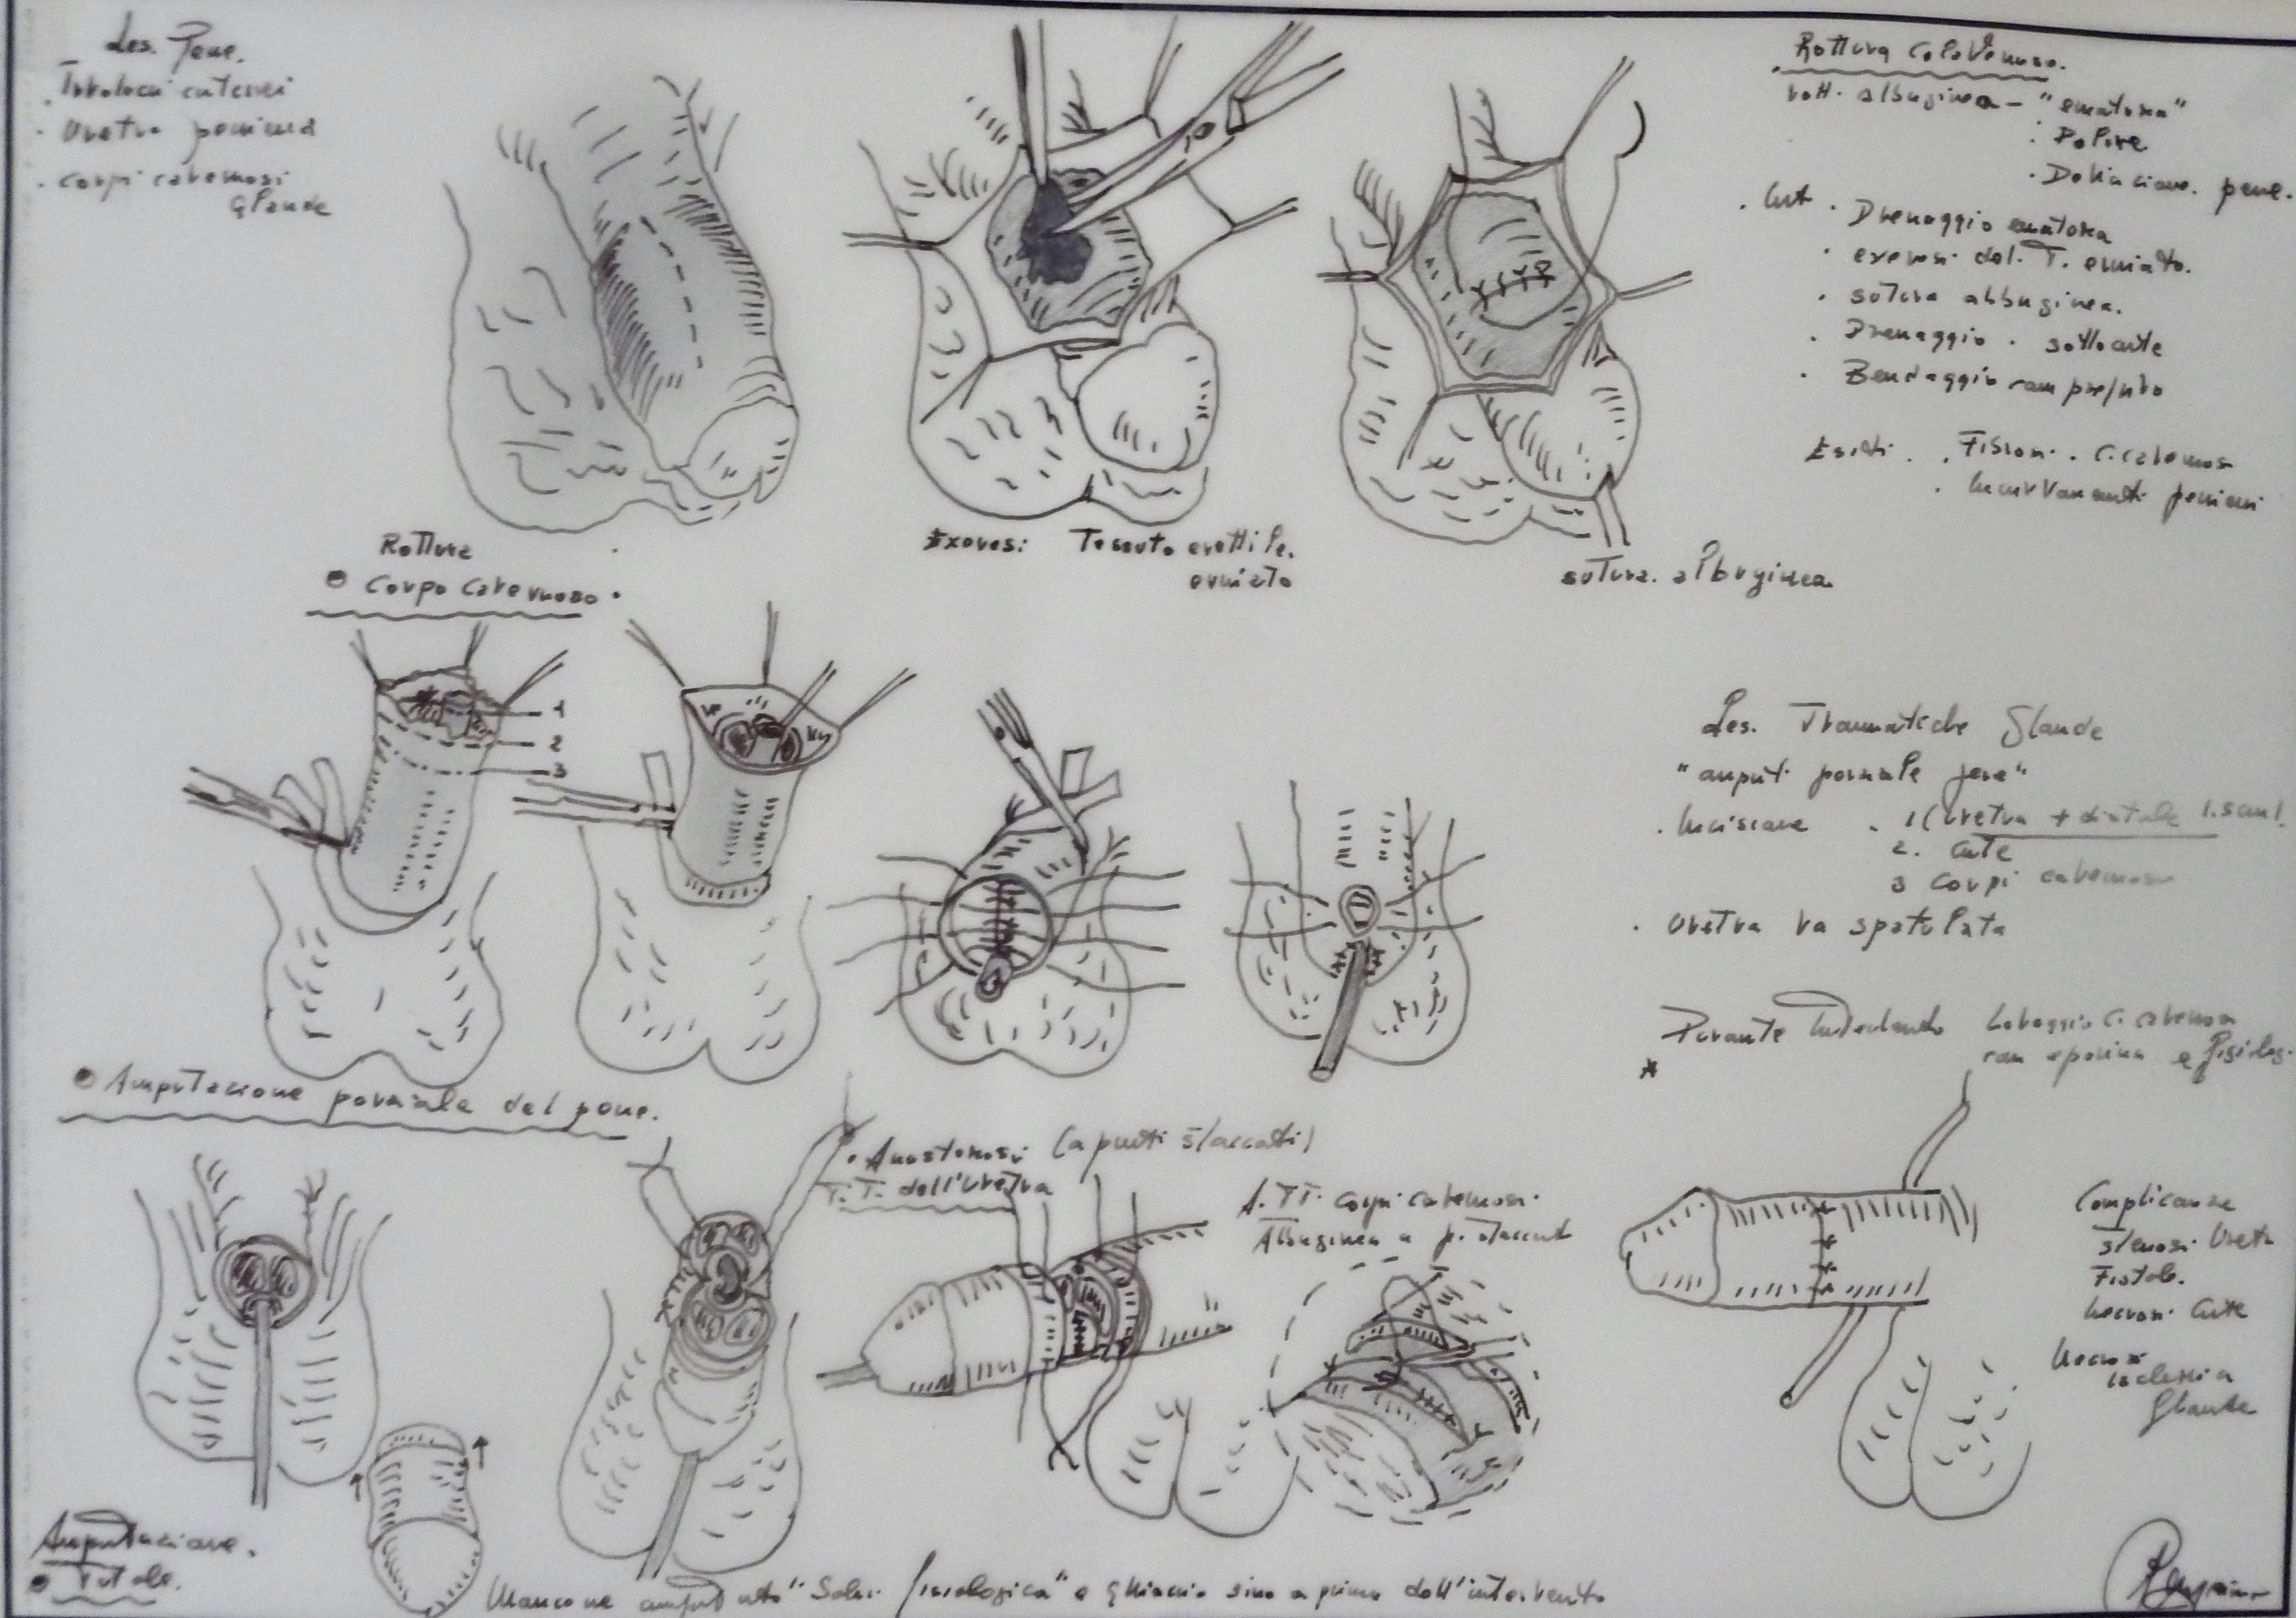 Les. Pene.
· Uretra peniena
· Corpi cavernosi
Glande
Rottura Cavernoso.
rott. albuginea - "ematoma"
· Dolore
· Deviazione. pene.
· Drenaggio ematoma
· exeresi del. T. erniato.
· sutura albuginea.
· Drenaggio · sottocute
· Bendaggio compressivo
Esiti · . Fibrosi . C. cavernosi
· Incurvamenti penieni
Rottura
Corpo Cavernoso ·
Exeresi Tessuto erettile.
erniato
sutura. albuginea
1
2
3
Les. Traumatiche Glande
"amput parziale pene"
· Incisione · 1 (uretra + distale
2. cute
3 Corpi cavernosi
· Uretra va spatulata
* Durante intervento Lavaggio C. cavernosi
con eparina e fisiolog.
Amputazione parziale del pene.
· Anastomosi (a punti staccati)
T.T. dell'uretra
A. TT. corpi cavernosi
Albuginea a p. staccati
Complicanze
Stenosi Uretr
Fistole.
Necrosi Cute
Necrosi
ischemia
Glande
Amputazione.
Totale.
Moncone amputato "Soluz. fisiologica" e ghiaccio sino a prima dell'intervento